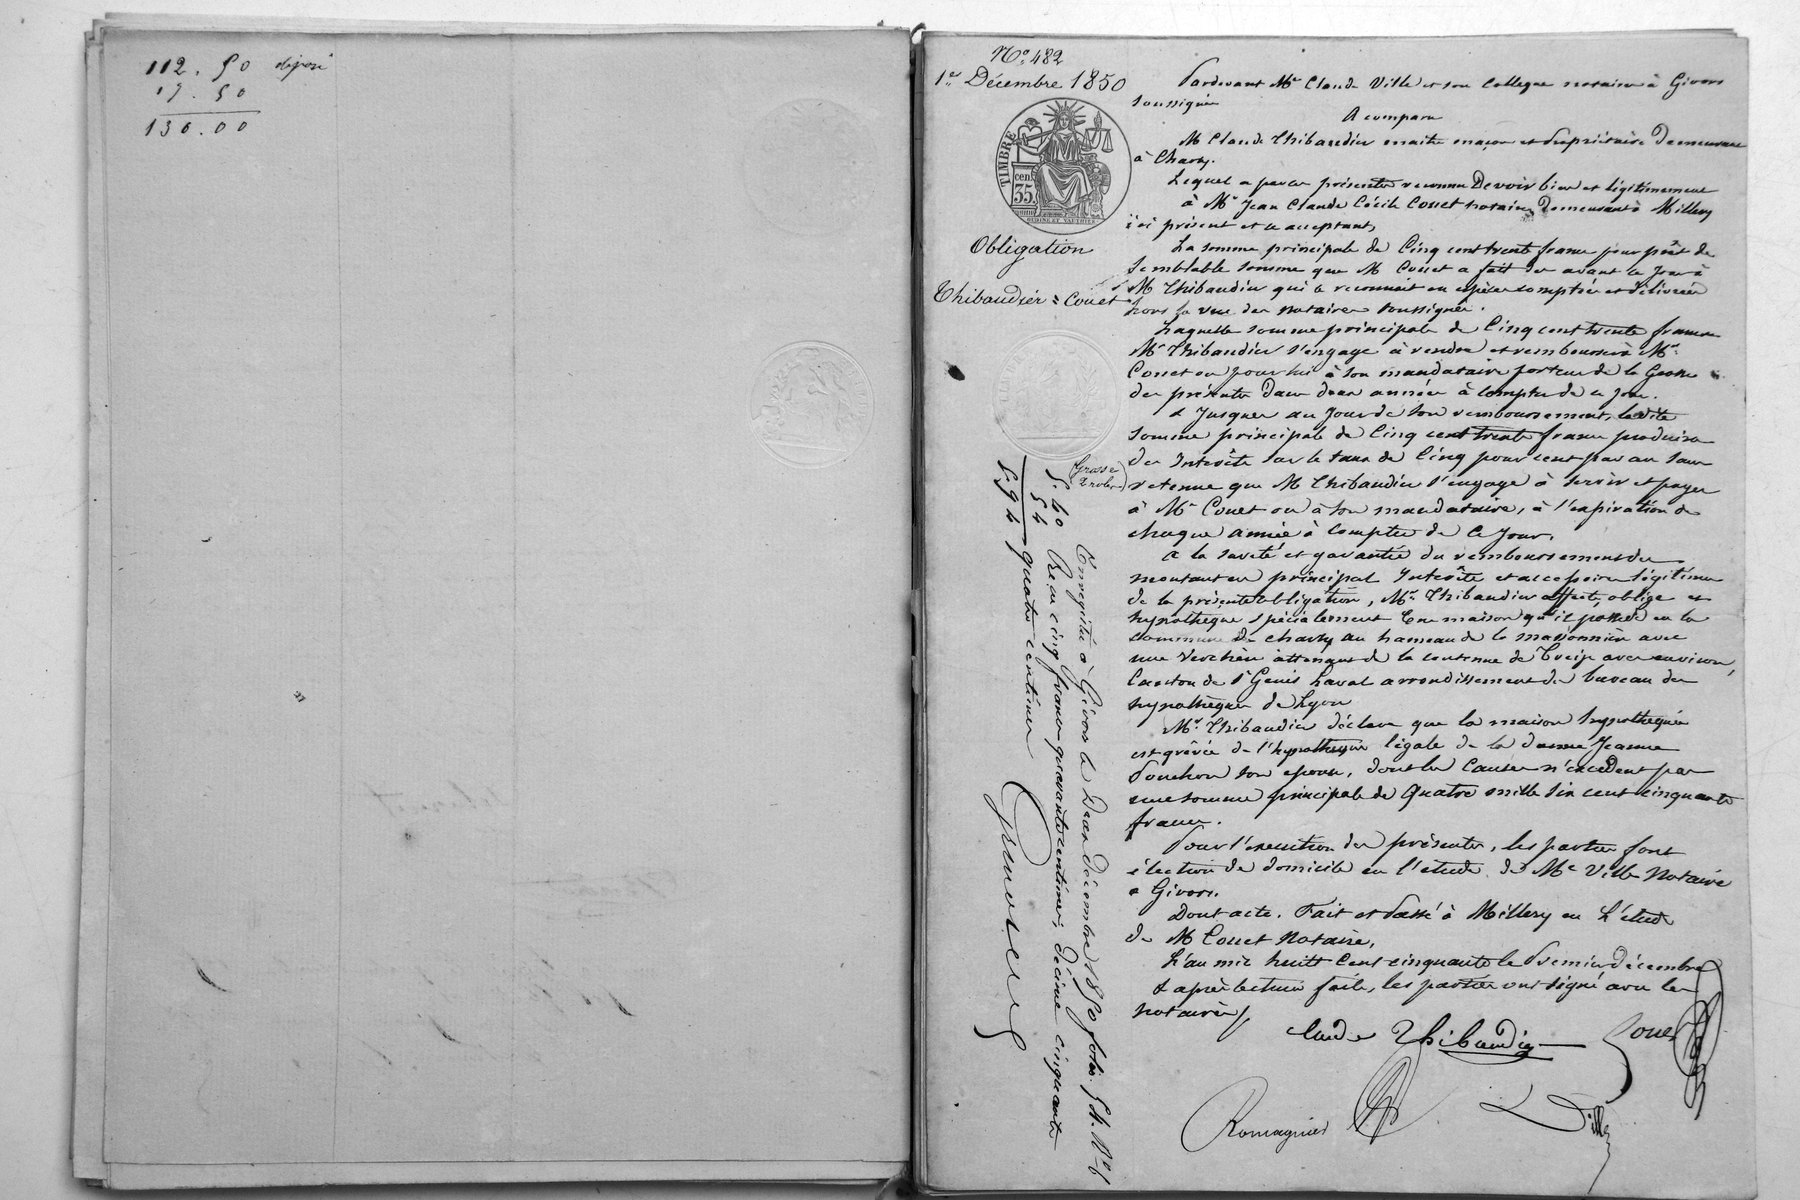 112. 50 déposé
17. 50
130.00
N° 482
1er Décembre 1850
TIMBRE
35 cen.
Obligation
Thibaudier = Couet
Grosse
Pardevant Me Claude Ville et son Collegue notaires à Givors
soussignés
A comparu
M Claude Thibaudier maitre maçon et propriétaire demeurant
à Charly.
Lequel a par ces présentes reconnu Devoir bien et légitimement
à Me Jean Claude Cécile Couet notaire, demeurant à Millery
ici présent et ce acceptant,
La somme principale de Cinq cent trente francs pour prêt de
semblable somme que M Couet a fait dès avant ce jour à
M Thibaudier qui le reconnait en espèces comptées et délivrées
hors la vue des notaires soussignés.
Laquelle somme principale de Cinq cent trente francs
Mr Thibaudier s'engage à rendre et rembourser à Mr
Couet ou pour lui à son mandataire porteur de la Grosse
des présentes dans deux années à compter de ce jour.
& Jusques au Jour de son remboursement, ladite
somme principale de Cinq cent trente francs produira
des Intérêts sur le taux de Cinq pour cent par an sans
retenue que M Thibaudier s'engage à servir et payer
à Mr Couet ou à son mandataire, à l'expiration de
chaque année à compter de ce Jour.
a la sureté et garantie du remboursement du
montant en principal Intérêts et accessoires légitimes
de la présente obligation, Mr Thibaudier affecte, oblige et
hypothèque spécialement Une maison qu'il possède en la
commune de Charly au hameau de la massonnière avec
une verchère attenant de la contenue de Treize ares environ,
Canton de St Genis Laval arrondissement du bureau des
hypothèques de Lyon
Mr Thibaudier déclare que la maison hypothéquée
est grévée de l'hypothèque légale de la dame Jeanne
Ponchon son epouse, dont les Causes n'excèdent pas
une somme principale de Quatre mille six cent cinquante
francs.
Pour l'execution des présentes, les parties font
élection de domicile en l'étude de Me Ville Notaire
a Givors.
Dont acte. Fait et Passé à Millery en L'étude
de M Couet Notaire,
L'an mil huit Cent cinquante le Premier décembre
& après lecture faite, les parties ont signé avec les
notaires
Claude Thibaudier Couet
Romagnier Ville
Enregistré à Givors le Deux décembre 1850 folio 54. N° 6
5. 40 Reçu cinq francs quarante centimes; décime cinquante
54
5.94 quatre centimes